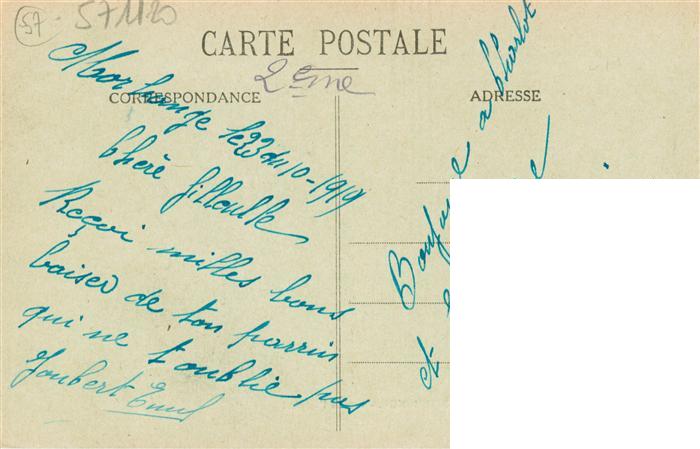 57
571120
CARTE POSTALE
2ème
CORRESPONDANCE
ADRESSE
Morhange le 23 du 10-1919
Chere filleulle
Reçoi milles bons
baiser de ton parrin
qui ne t'oublie pas
Joubert Emil
a Charlot